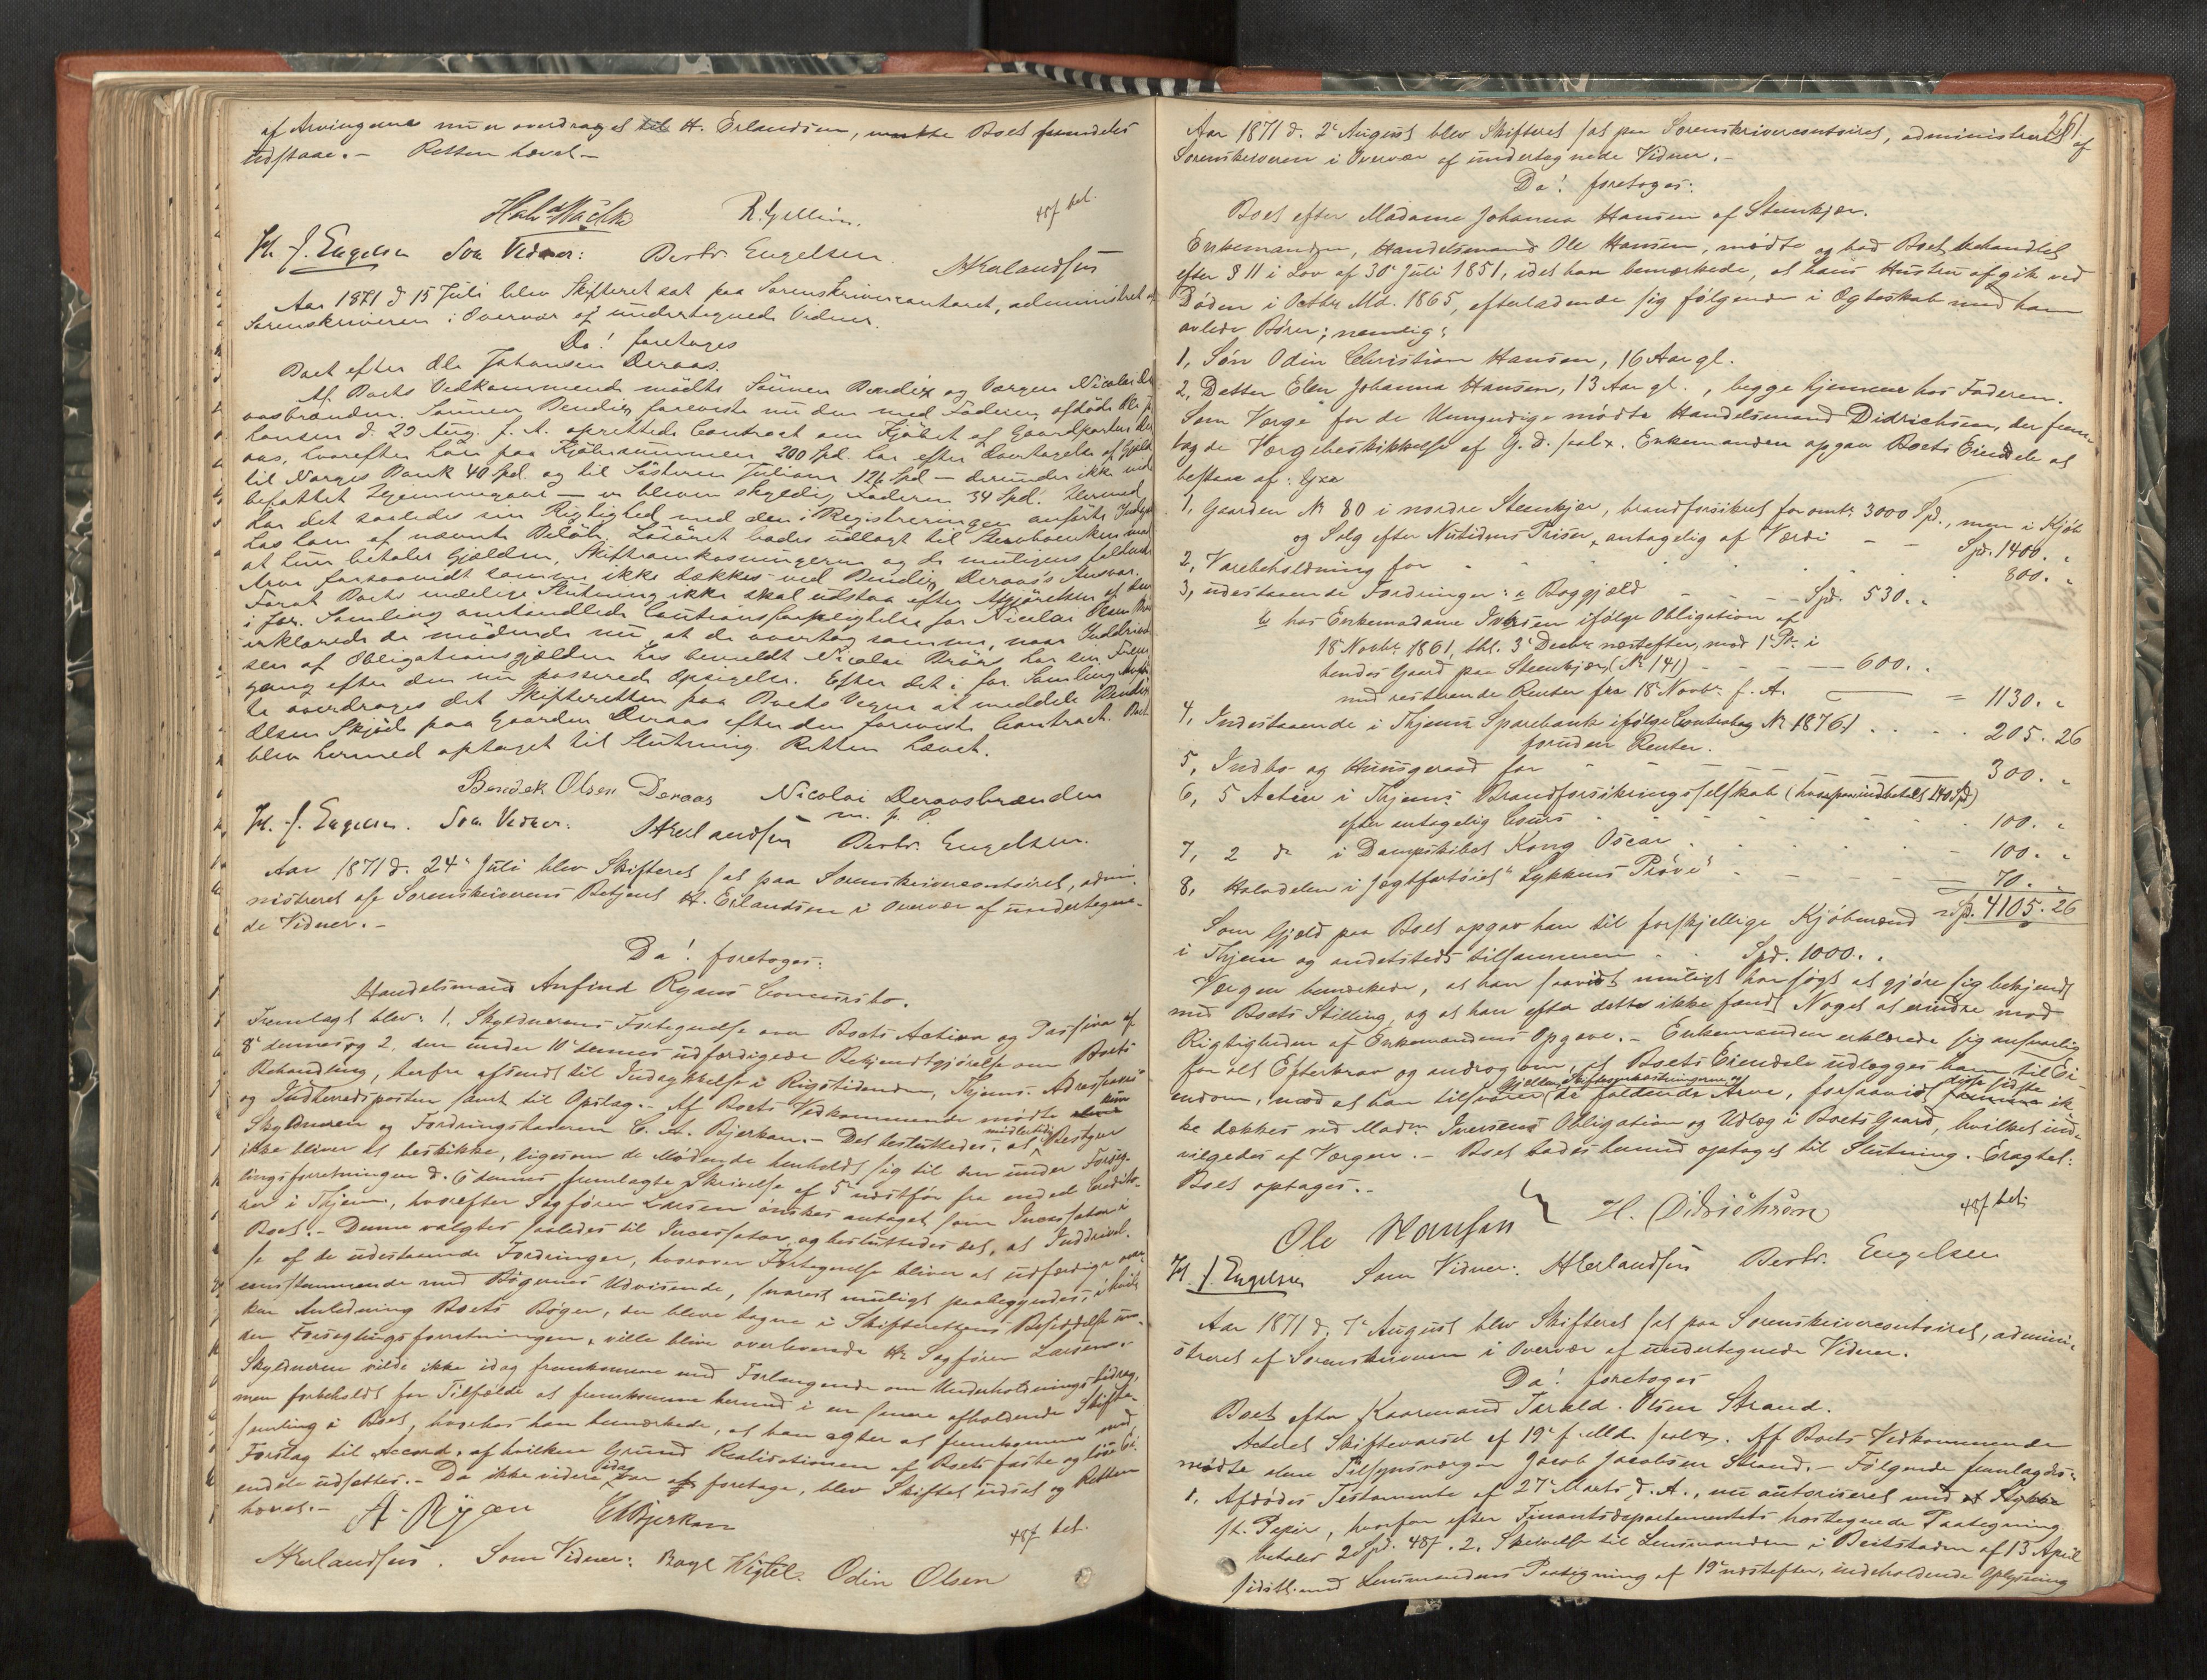 af Arvingerne nu er overdraget til H. Erlandsen, maatte Boet fremdeles
udstaae. - Retten hævet. -
R. Gellein.
48 ß bet.
H. J. Engelsen Som Vidner: Bertr. Engelsen. HErlandsen
Aar 1871 d. 15 Juli blev Skifteret sat paa Sorenskrivercontoret, administret af
Sorenskriveren i Overvær af undertegnede Vidner.
Da! foretoges
Boet efter Ole Johansen Deraas.
Af Boets Vedkommende mødte Sønnen Bendix og Værgen Nicolai De-
aasbrænden. Sønnen Bendix foreviste nu den med Faderen afdøde Ole Jo-
hansen d. 29 Aug. f. A. oprettede Contract om Kjøbet af Gaardparten Der-
aas, hvorefter han paa Kjøbesummen 200 Spd. har efter Overtagelse af Gjeld
til Norges Bank 40 Spd. og til Søsteren Juliane 126 Spd - derunder ikke ind-
befattet Hjemmegave - er bleven skyldig Faderen 34 Spd. Hermed
har det saaledes sin Rigtighed med den i Registreringen anførte
hos ham af nævnte Beløb. Løsøret bades udlagt til Stervboenken mod
at hun betaler Gjælden, Skifteomkostningerne og de muligens faldende
Arve forsaavidt samme ikke dækkes ved Bendix Deraas's Ansvar.
Forat Boets endelige Slutning ikke skal udstaa efter Afgjørelsen af den
i for. Samling omhandlede Cautionsforpligtelse for Nicolai Olsen
erklærede de mødende nu, at de overtog samme, naar Inddrivel-
sen af Obligationsgjælden hos bemeldt Nicolai har sin Frem-
gang efter den nu passerede Opsigelse. Efter det i for. Samling Anfør-
te overdroges det Skifteretten paa Boets Vegne at meddele Bendix
Olsen Skjøde paa Gaarden Deraas efter den foreviste Contract. Boet
blev hermed optaget til Slutning. Retten hævet.
Bendek Olsen Deraas Nicolai Deraasbrænden
m. p. P.
H. J. Engelsen. Som Vidner: HErlandsen Bertr. Engelsen.
Aar 1871 d. 24de Juli blev Skifteret sat paa Sorenskrivercontoiret, admi-
nistreret af Sorenskriverens Betjent H. Erlandsen i Overvær af undertegne-
de Vidner. -
Da! foretoges:
Handelsmand Anfind Ryans Concursbo.
Fremlagt blev: 1, Skyldnerens Fortegnelse over Boets Activa og Passiva af
8de dennes og 2. den under 10de dennes udfærdigede Bekjendtgjørelse om Boets
Behandling, herfra afsendt til Indrykkelse i Rigstidenden, Thjems. Adresseavis
og Indherredsposten samt til Opslag. - Af Boets Vedkommende mødte kun
Skyldneren og Fordringshaveren C. A. Bjerkan. - Det besluttedes, at midlertidig Bestyrer
ikke bliver at beskikke, ligesom de Mødende henholdt sig til den under Forseg-
lingsforretningen d. 6 dennes fremlagte Skrivelse af 5te næstfør fra endel Credito-
rer i Thjem, hvorefter Sagfører Larsen ønskes antaget som Incassator i
Boet. - Denne valgtes saaledes til Incassator, og besluttedes det, at Inddrivel-
se af de udestaaende Fordringer, hvorover Fortegnelse bliver at udfærdige over-
ensstemmende med Bøgernes Udvisende, snarest muligt paabegyndes, i hvil-
ken Anledning Boets Bøger, der bleve tagne i Skifterettens Besiddelse un-
der Forseglingsforretningen, ville blive overleverede Hr. Sagfører Larsen. -
Skyldneren vilde ikke idag fremkomme med Forlangende om Underholdningsbidrag,
men forbeholdt for Tilfælde at fremkomme hermed i en senere afholdende Skifte-
samling i Boet, hvorhos han bemærkede, at han agter at fremkomme med
Forslag til Accord, af hvilken Grund Realisationen af Boets faste og løse Ei-
endele udsættes. - Da ikke videre idag var at foretage, blev Skiftet udsat og Retten
hævet. -
A. Ryan CABjerkan
48 ß bet.
HErlandsen. Som Vidner: Odin Olsen
261
Aar 1871 d. 2de August blev Skifteret sat paa Sorenskrivercontoiret, administreret af
Sorenskriveren i Overvær af undertegnede Vidner. -
Da! foretoges:
Boet efter Madame Johanna Hansen af Steenkjær.
Enkemanden, Handelsmand Ole Hansen, mødte og bad Boet behandlet
efter § 11 i Lov af 30te Juli 1851, idet han bemærkede, at hans Hustru afgik ved
Døden i Octbr. Md. 1865, efterladende sig følgende i Ægteskab med ham
avlede Børn; nemlig:
1, Søn Odin Christian Hansen, 16 Aar gl.
2, Datter Elen Johanna Hansen, 13 Aar gl. , begge hjemme hos Faderen.
Som Værge for de Umyndige mødte Handelsmand Didrichsen, der frem-
lagde Værgebeskikkelse af G. D. saal. Enkemanden opgav Boets Eiendele at
bestaae af:
1, Gaarden No 80 i nordre Steenkjær, brandforsikret for omtr. 3000 Spd., men i Kjøb
og Salg efter Nutidens Priser, antagelig af Værdi - - Spd. 1400. "
2, Varebeholdning for - - - - - 800. "
3, udestaaende Fordringer: a Boggjæld - - - Spd. 530. "
b hos Enkemadame Iversen ifølge Obligation af
18 Novbr. 1861, thl. 3de Decbr. næstefter, med 1ste Pr. i
hendes Gaard paa Steenkjær, (No 141) - - - - 600. "
med resterende Renter fra 18de Novbr. f. A. = 1130. "
4, Indestaaende i Thjems Sparebank ifølge Contrabog No 18761 . . . . 205. 26
foruden Renter.
5, Indbo og Huusgeraad for - - - - - 300. "
6, 5 Actier i Thjems Brandforsikringsselskab (hvorpaa indbetalt 140 Spd)
efter antagelig Cours - - - - 100. "
7, 2 do i Dampskibet Kong Oscar - - - - 100. "
8, Halvdelen i Jægtfartøiet "Lykkens Prøve" - - - - 70. "
Spd. 4105. 26
Som Gjæld paa Boet opgav han til forskjellige Kjøbmænd
i Thjem og andetsteds tilsammen . . Spd. 1000. "
Værgen bemærkede, at han saavidt muligt har søgt at gjøre sig bekjendt
med Boets Stilling, og at han efter dette ikke fandt Noget at erindre mod
Rigtigheden af Enkemandens Opgave. - Enkemanden erklærede sig ansvarlig
for alt Efterkrav og androg om, at Boets Eiendele udlægges ham til Ei-
endom, mod at han tilsvarer Gjælden, Skifteomkostningerne og de faldende Arve, forsaavidt disse sidste ik
ke dækkes ved Madm. Iversens Obligation og Udlæg i Boets Gaard, hvilket ind-
vilgedes af Værgen. - Boet bades hermed optaget til Slutning. Eragtet:
Boet optages. -
48 ß bet.
Ole Hansen H. Didrichsen
H. J. Engelsen Som Vidner: HErlandsen Bertr. Engelsen
Aar 1871 d. 7de August blev Skifteret sat paa Sorenskrivercontoiret, admini-
streret af Sorenskriveren i Overvær af undertegnede Vidner.
Da! foretoges
Boet efter Kaarmand Tarald Olsen Strand.
Acteret Skiftevarsel af 19de f. Md. saal. Af Boets Vedkommende
mødte alene Tilsynsværgen Jacob Jacobsen Strand. - Følgende fremlagdes:
1, Afdødes Testamente af 27de Marts d. A., nu autoriseret med
st. Papir, hvorfor efter Finantsdepartementets hostegnede Paategning
betales 2 Spd. 48 ß. 2. Skrivelse til Lensmanden i Beitstaden af 13 April
sidstl. med Lensmandens Paategning af 19de næstefter, indeholdende Oplysning